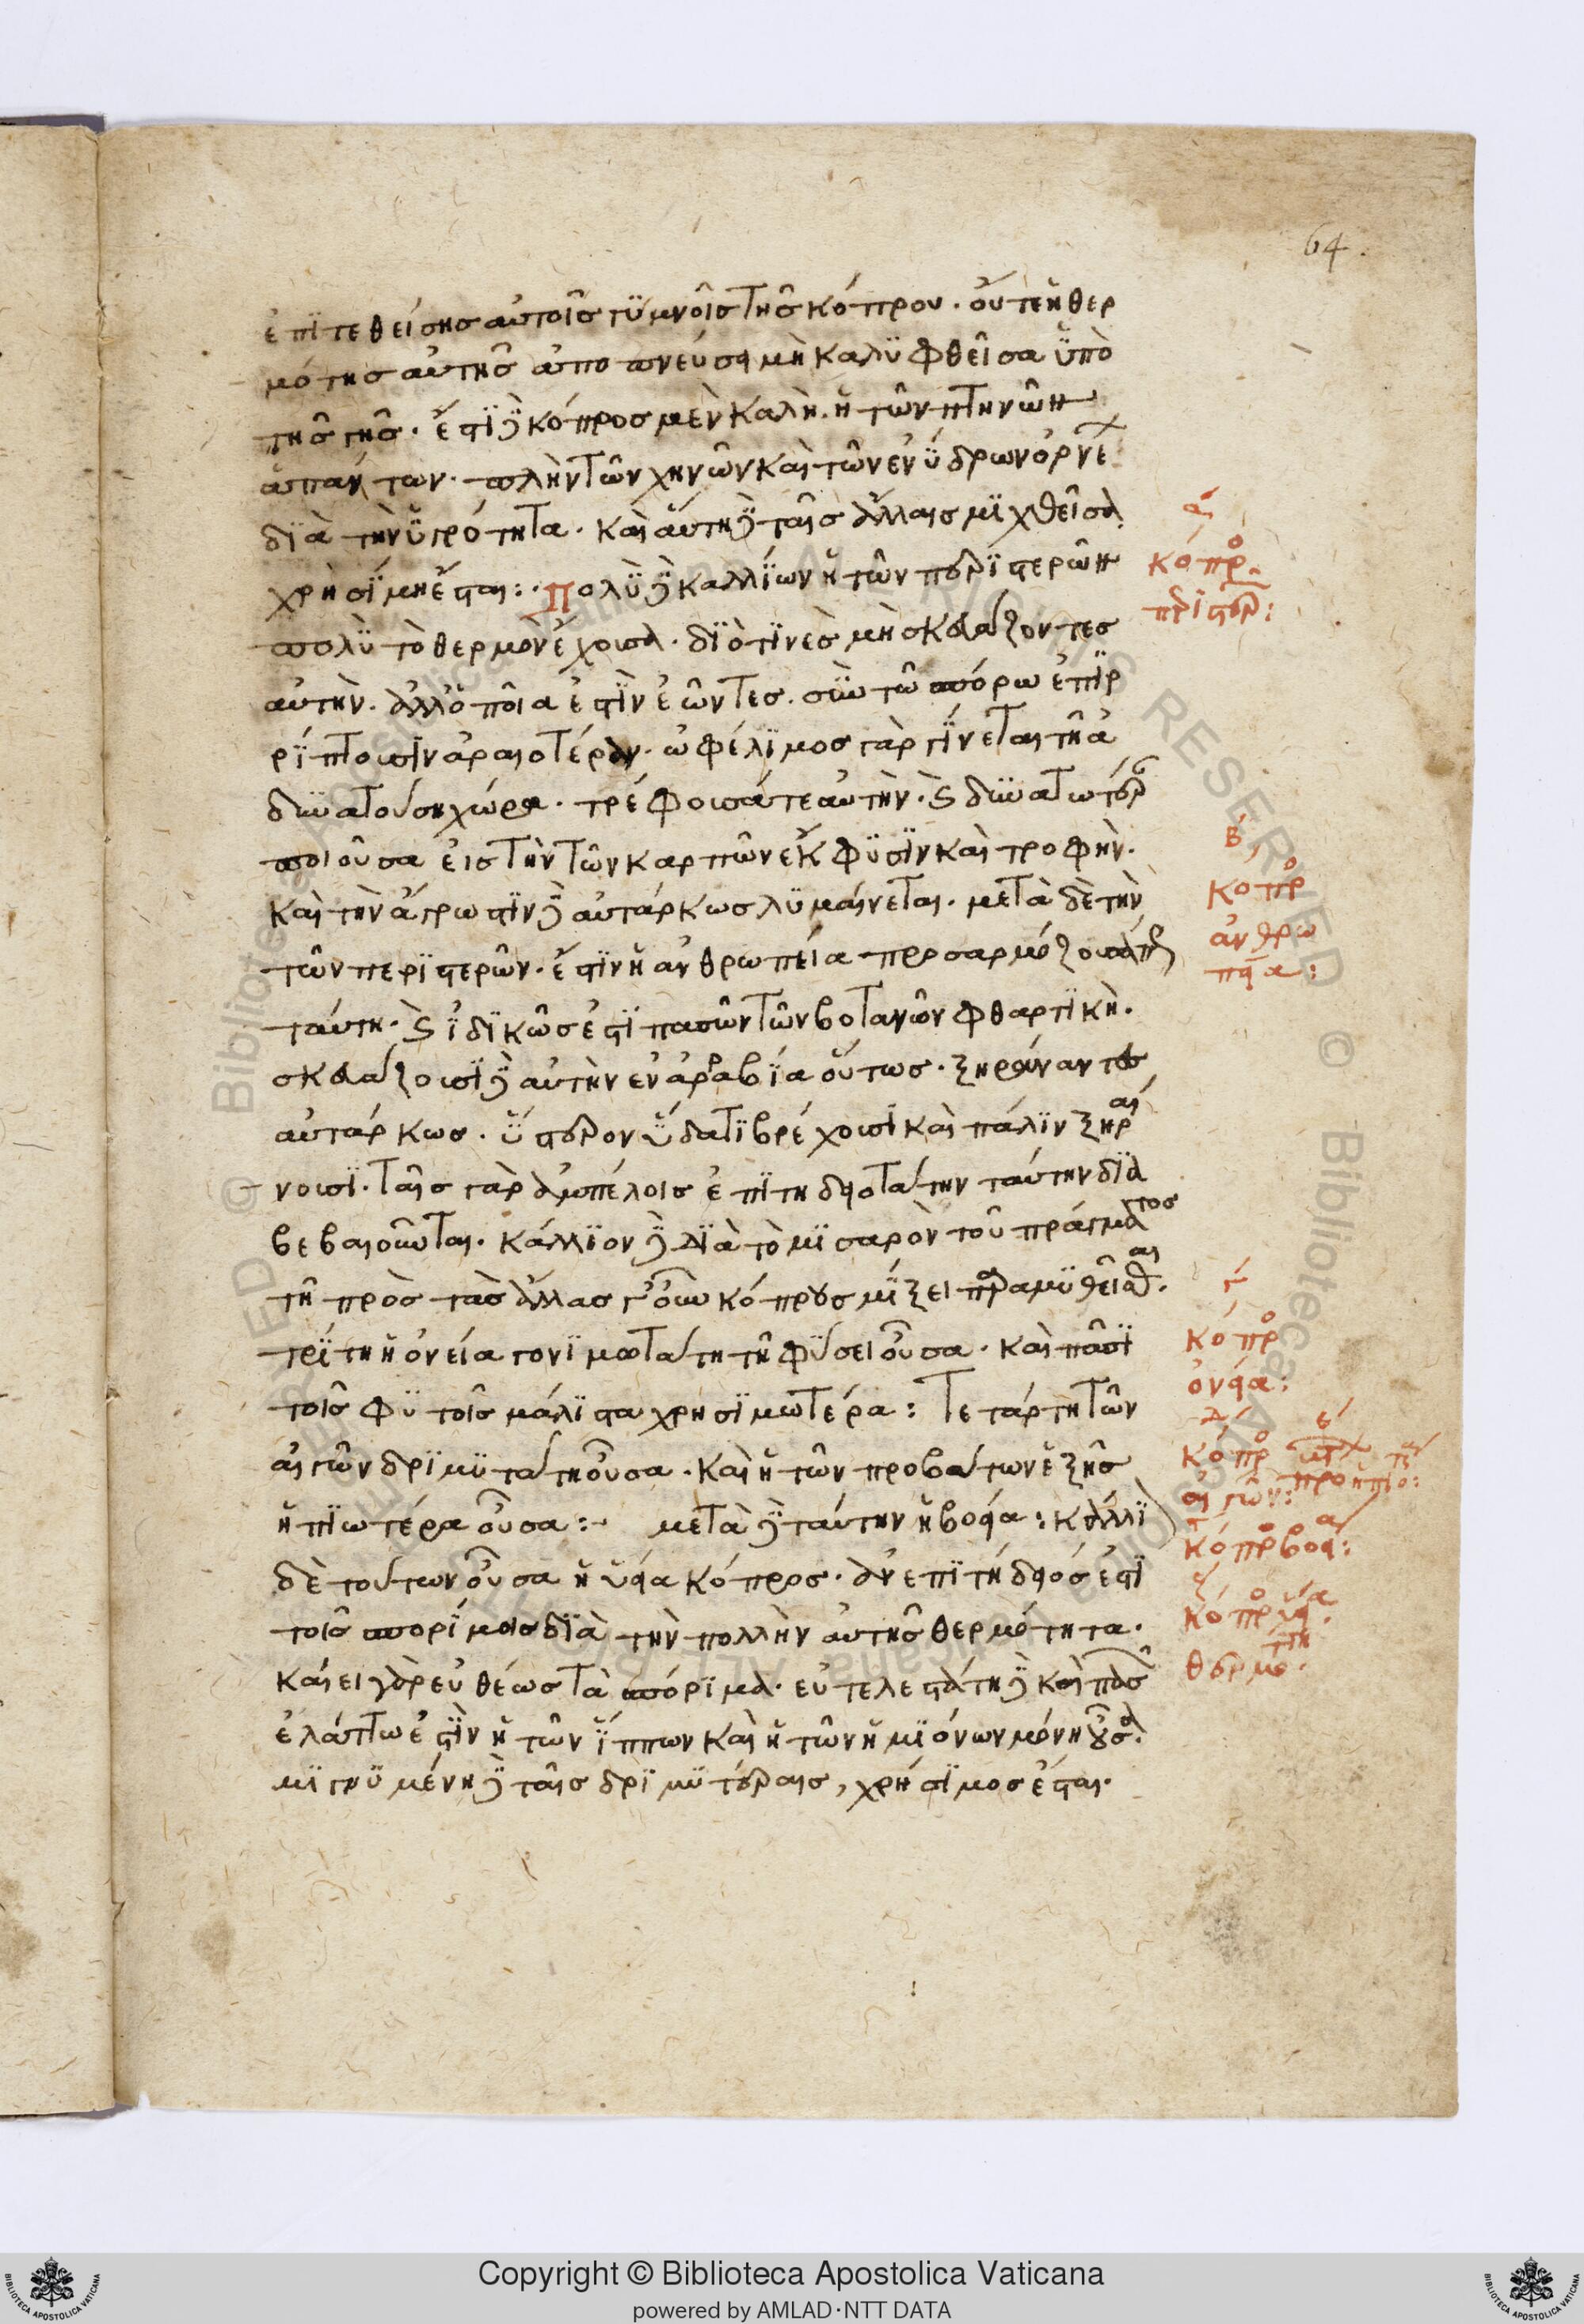 64.
ἐπιτεθείσης αὐτοῖς γυμνοῖς τῆς κόπρου. οὔτε ἡ θερ
μότης αὐτῆς ἀποπνεύσῃ μὴ καλυφθεῖσα ὑπὸ
τῆς γῆς. ἔστι δὲ κόπρος μὲν καλὴ. ἡ τῶν πτηνῶν
ἁπάντων. πλὴν τῶν χηνῶν καὶ τῶν ἐνύδρων ὀρνέ
διὰ τὴν ὑγρότητα. καὶ αὕτη δὲ ταῖς ἄλλαις μιχθεῖσα
χρησίμη ἔσται: · Πολὺ δὲ καλλίων ἡ τῶν περιστερῶν
πολὺ τὸ θερμὸν ἔχουσα. διό τινὲς μὴ σκευάζοντες
αὐτὴν. ἀλλ' ὁποῖα ἐστὶν ἐῶντες. σὺν τῶ σπόρω ἐπιρ
ρίπτουσιν ἀραιοτέραν. ὠφέλιμος γὰρ γίνεται τῆ ἀ
δυνατούση χώρα. τρέφουσά τε αὐτὴν. καὶ δυνατωτέραν
ποιοῦσα εἰς τὴν τῶν καρπῶν ἔκφυσιν καὶ τροφὴν.
καὶ τὴν ἄγρωστιν δὲ αὐτάρκως λυμαίνεται. μετὰ δὲ τὴν
τῶν περιστερῶν. ἔστιν ἡ ἀνθρωπεία προσαρμόζουσα πως
ταύτη. καὶ ἰδικῶς ἐστι πασῶν τῶν βοτανῶν φθαρτικὴ.
σκευάζουσι δὲ αὐτὴν ἐν ἀραβία οὕτως. ξηράναντες
αὐτάρκως. ὕστερον ὕδατι βρέχουσι καὶ πάλιν ξηραί
νουσι. ταῖς γὰρ ἀμπέλοις ἐπιτηδειοτάτην ταύτην δια
βεβαιοῦνται. κάλλιον δὲ διὰ τὸ μισαρὸν τοῦ πράγματος
τῆ πρὸς τὰς ἄλλας γοῦν κόπρους μίξει παραμυθεῖσθαι.
τρίτη ἡ ὀνεία γονιμωτάτη τῆ φύσει οὖσα. καὶ πᾶσι
τοῖς φυτοῖς μάλιστα χρησιμωτέρα: Τετάρτη τῶν
αἰγῶν δριμυτάτη οὖσα. καὶ ἡ τῶν προβάτων ἑξῆς
ἠπιωτέρα οὖσα: · μετὰ δὲ ταύτην ἡ βοεία: καλλί
δὲ τούτων οὖσα ἡ ὑεία κόπρος. ἀνεπιτήδειός ἐστι
τοῖς σπορίμοις διὰ τὴν πολλὴν αὐτῆς θερμότητα.
καίει γὰρ εὐθέως τὰ σπόριμα. εὐτελεστάτη δὲ καὶ πασῶν
ἐλάττων ἐστὶν ἡ τῶν ἵππων καὶ ἡ τῶν ἡμιόνων μόνη οὖσα.
μιγνυμένη δὲ ταῖς δριμυτέραις, χρήσιμος ἔσται.
α
κόπρο
περιστερ:
β
κοπρο
ἀνθρω
πεία:
γ
κόπρο
ὀνεία:
δ
κόπρο
αἰγῶν:
ε
προ
κόπρο βοεία:
κόπρο ὑεία.
θερμό.